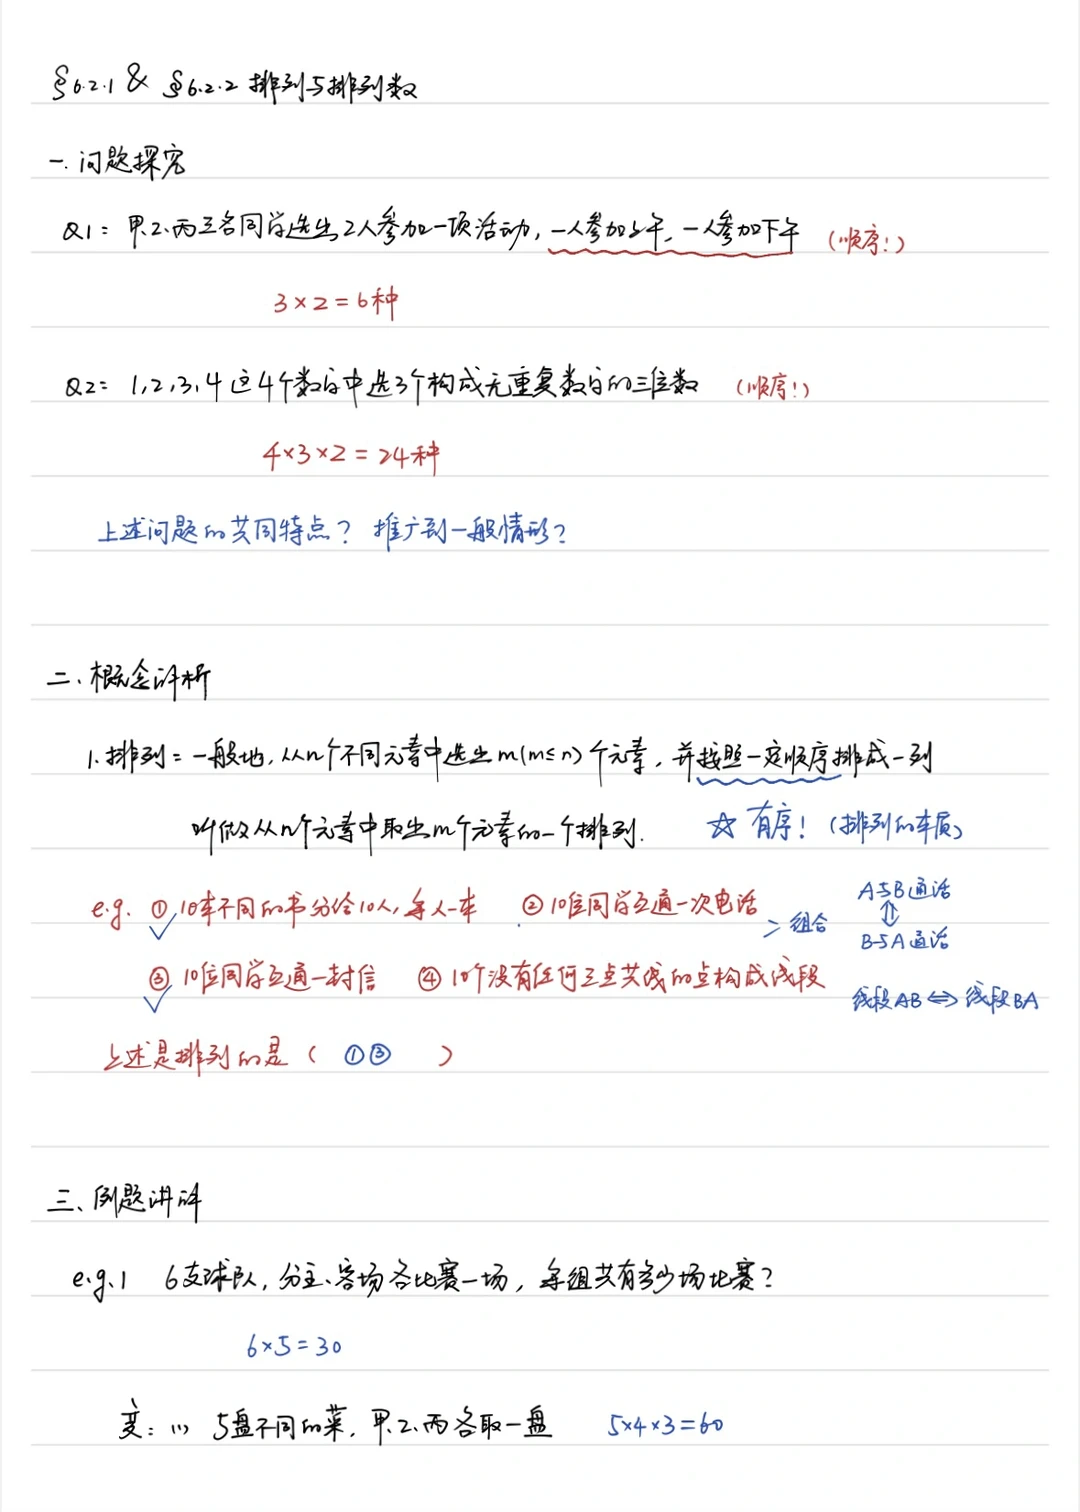 §6.2.1 & §6.2.2 排列与排列数
一. 问题探究
Q1: 甲.乙.丙三名同学选出2人参加一项活动, 一人参加上午, 一人参加下午 (顺序!)
3×2=6种
Q2: 1,2,3,4这4个数字中选3个构成无重复数字的三位数 (顺序!)
4×3×2=24种
上述问题的共同特点? 推广到一般情形?
二、概念讲析
1. 排列: 一般地, 从n个不同元素中选出m(m≤n)个元素, 并按照一定顺序排成一列
叫做从n个元素中取出m个元素的一个排列. ☆ 有序! (排列的本质)
e.g. ① 10本不同的书分给10人, 每人一本 ② 10位同学互通一次电话 > 组合 A与B通话 ⇕ B与A通话
③ 10位同学互通一封信 ④ 10个没有任何三点共线的点构成线段 线段AB ⇔ 线段BA
上述是排列的是 ( ①③ )
三、例题讲评
e.g.1 6支球队, 分主、客场各比赛一场, 每组共有多少场比赛?
6×5=30
变: (1) 5盘不同的菜, 甲.乙.丙各取一盘 5×4×3=60